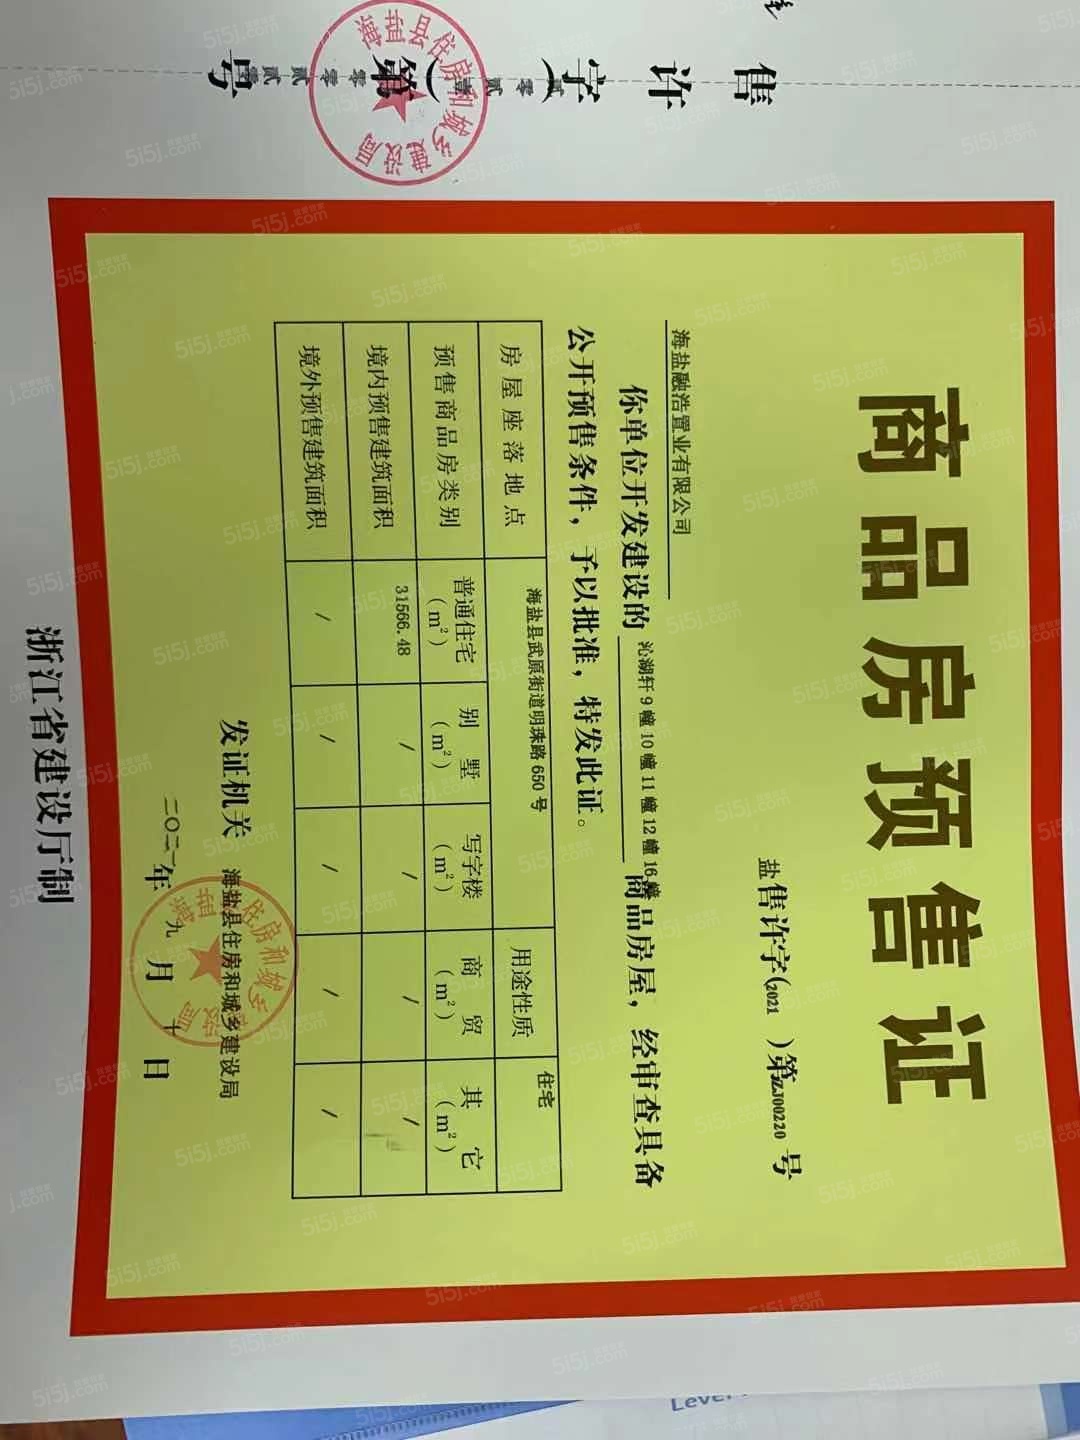 售许字(贰零贰壹)第零零贰贰零号
海盐县住房和城乡建设局
商品房预售证
盐售许字(2021 )第ZJ00220号
海盐融浩置业有限公司
你单位开发建设的 沁湖轩9幢10幢11幢12幢16幢 商品房屋，经审查具备
公开预售条件，予以批准，特发此证。
房屋座落地点 海盐县武原街道明珠路650号 用途性质 住宅
预售商品房类别 普通住宅(m²) 别墅(m²) 写字楼(m²) 商贸(m²) 其它(m²)
境内预售建筑面积 31566.48 / / / /
境外预售建筑面积 / / / / /
发证机关 海盐县住房和城乡建设局
海盐县住房和城乡建设局
二〇二一年 九 月 十 日
浙江省建设厅制
5i5j.com